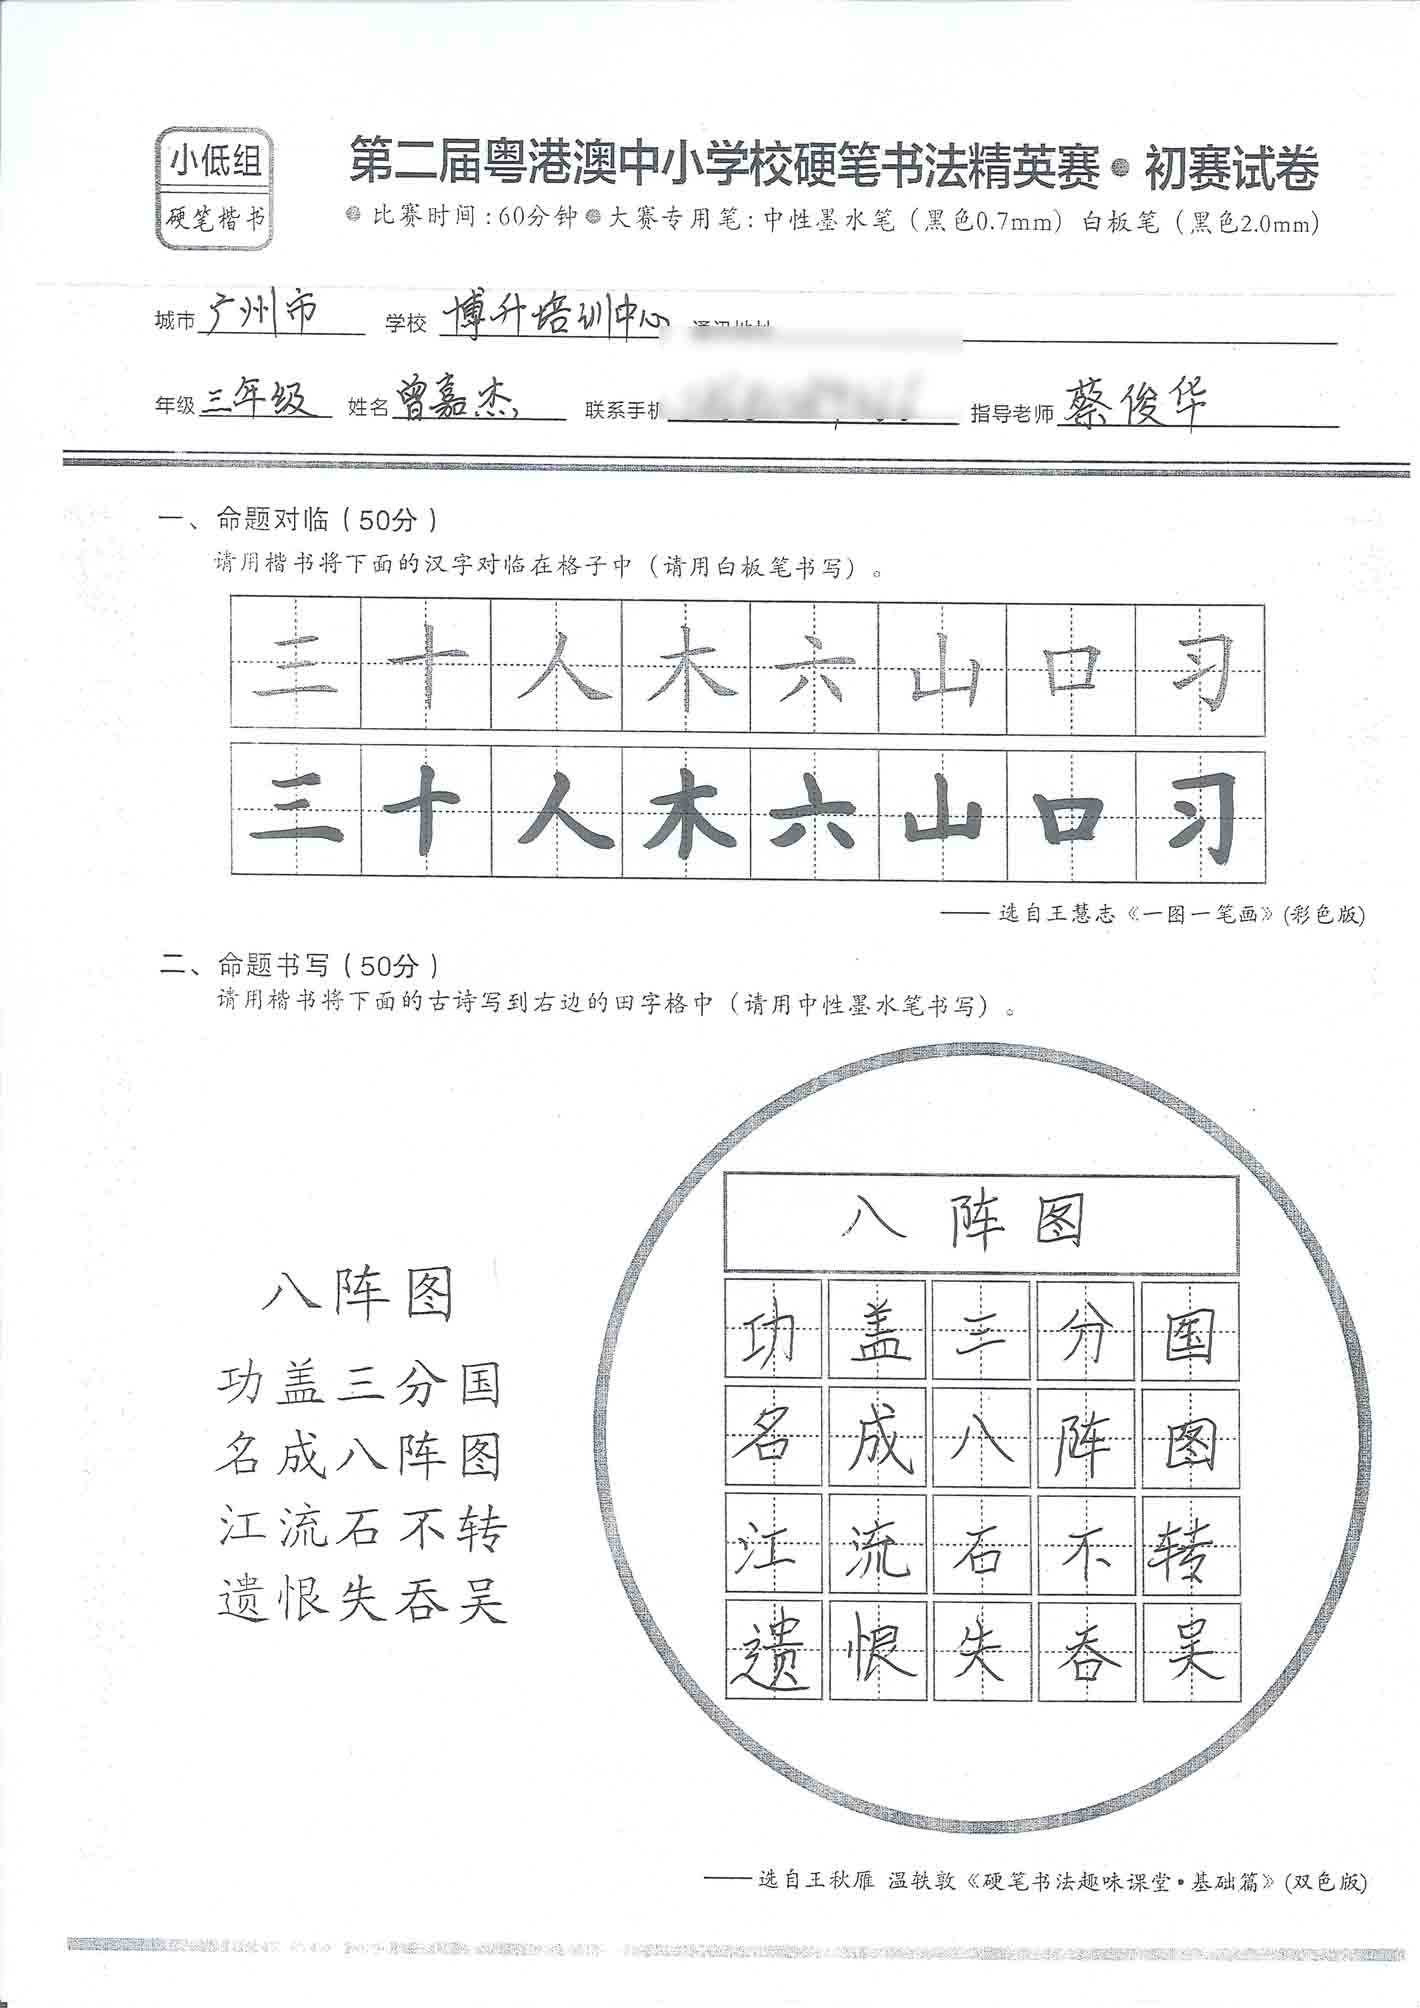 小低组
硬笔楷书
第二届粤港澳中小学校硬笔书法精英赛●初赛试卷
●比赛时间:60分钟●大赛专用笔:中性墨水笔(黑色0.7mm) 白板笔(黑色2.0mm)
城市 广州市 学校 博升培训中心 通讯地址
年级 三年级 姓名 曾嘉杰 联系手机 指导老师 蔡俊华
一、命题对临(50分)
请用楷书将下面的汉字对临在格子中(请用白板笔书写)。
三十人木六山口习
三十人木六山口习
—— 选自王慧志《一图一笔画》(彩色版)
二、命题书写(50分)
请用楷书将下面的古诗写到右边的田字格中(请用中性墨水笔书写)。
八阵图
功盖三分国
名成八阵图
江流石不转
遗恨失吞吴
八阵图
功盖三分国
名成八阵图
江流石不转
遗恨失吞吴
—— 选自王秋雁 温轶敦《硬笔书法趣味课堂·基础篇》(双色版)